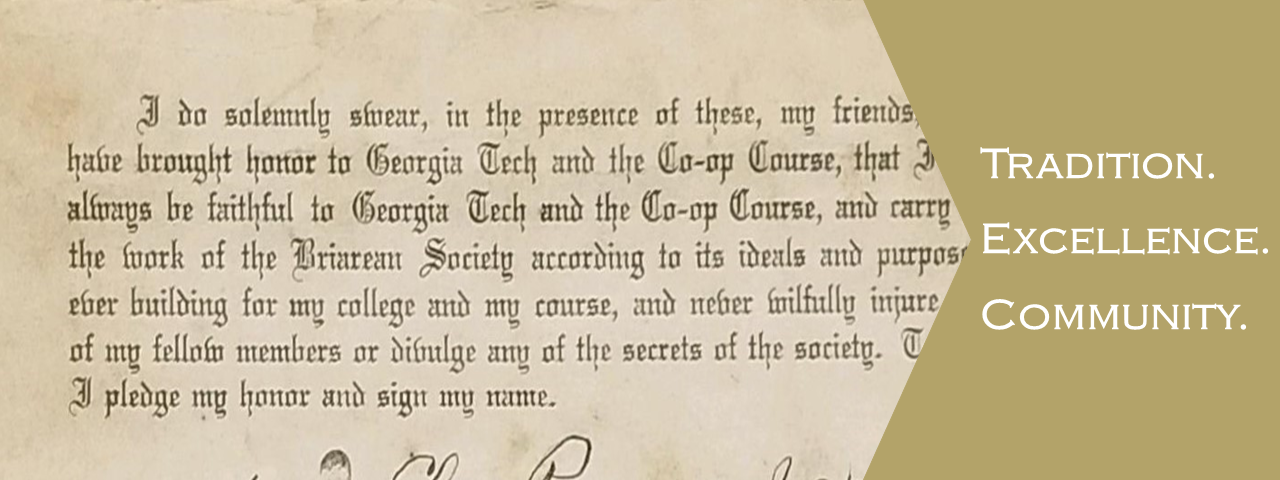 I do solemnly swear, in the presence of these, my friends,
have brought honor to Georgia Tech and the Co-op Course, that I
always be faithful to Georgia Tech and the Co-op Course, and carry
the work of the Briarean Society according to its ideals and
ever building for my college and my course, and never wilfully injure
of my fellow members or divulge any of the secrets of the society.
I pledge my honor and sign my name.
TRADITION.
EXCELLENCE.
COMMUNITY.